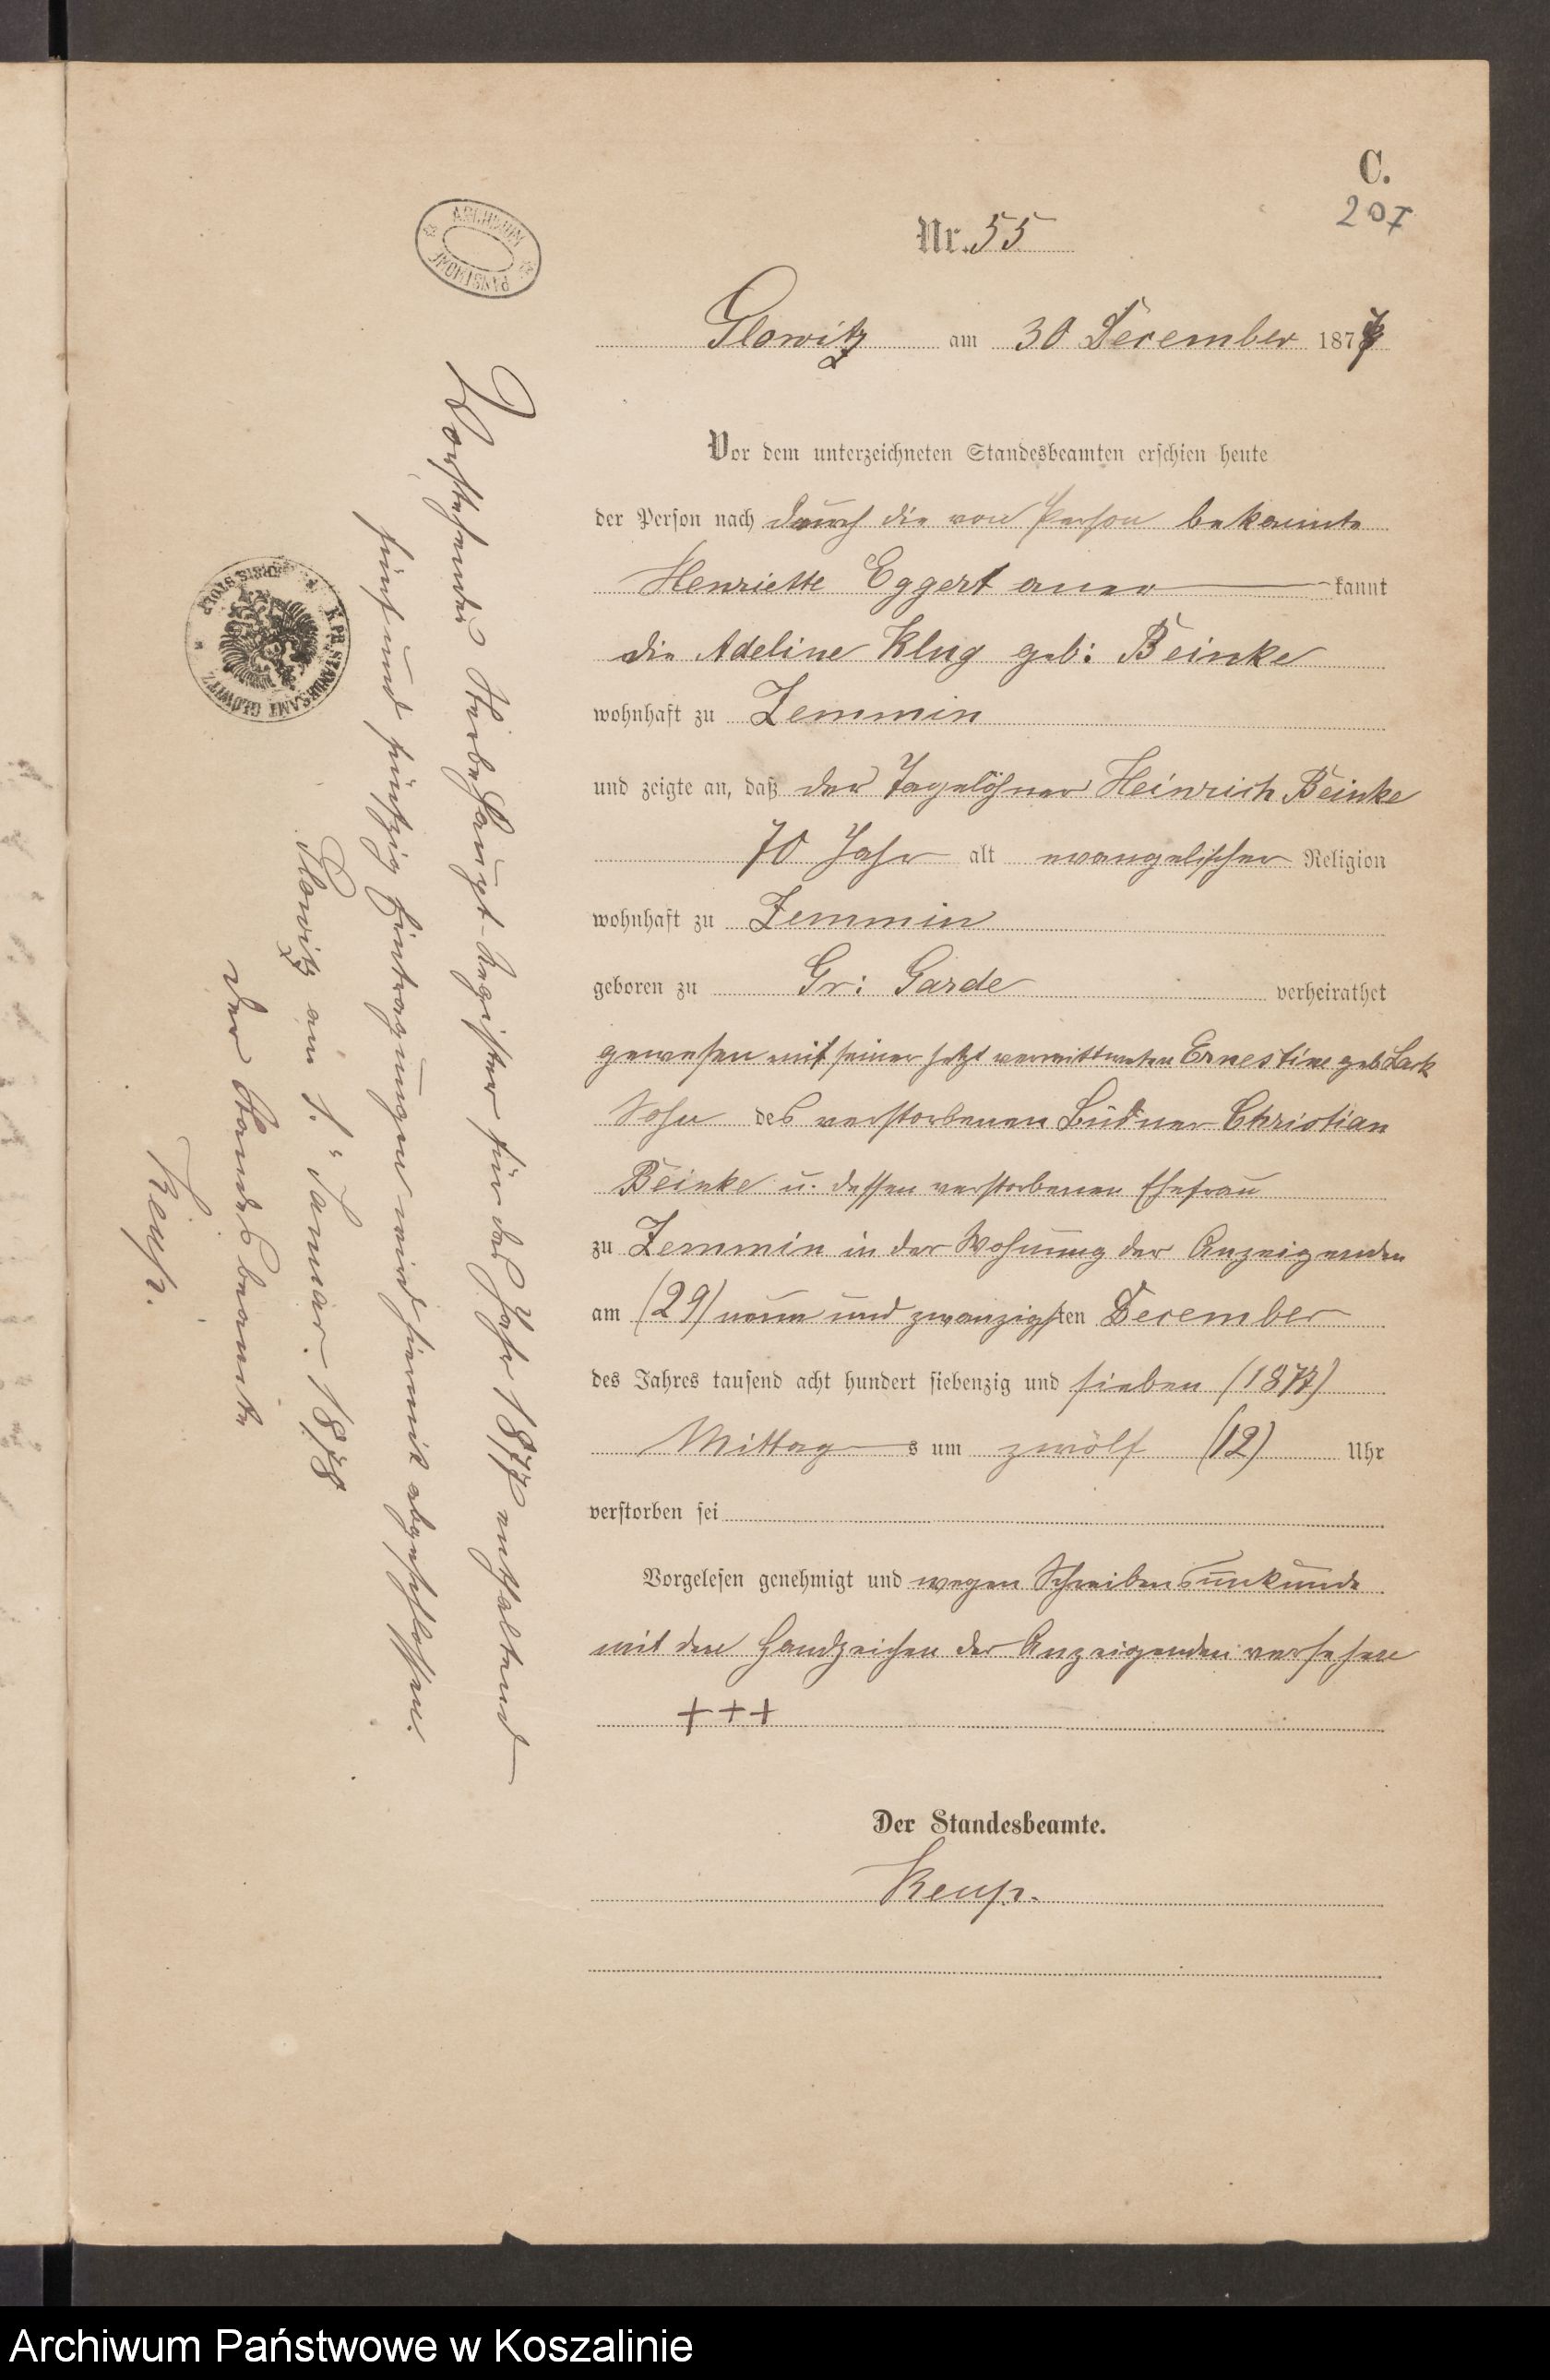 C.
207
Nr. 55
Glowitz am 30 December 1877
Vor dem unterzeichneten Standesbeamten erschien heute
der Person nach durch die von Person bekannte
Henriette Eggert aner kannt
die Adeline Klug geb: Beinke
wohnhaft zu Zemmin
und zeigte an, daß der Tagelöhner Heinrich Beinke
70 Jahr alt evangelischer Religion
wohnhaft zu Zemmin
geboren zu Gr: Garde verheirathet
gewesen mit seiner jetzt verwittweten Ernestine geb Lark
Sohn des verstorbenen Büdner Christian
Beinke u. dessen verstorbenen Ehefrau
zu Zemmin in der Wohnung der Anzeigenden
am (29) neun und zwanzigsten December
des Jahres tausend acht hundert siebenzig und sieben (1877)
Mittag s um zwölf (12) Uhr
verstorben sei
Vorgelesen genehmigt und wegen Schreibensunkunde
mit den Handzeichen der Anzeigenden versehen
+++
Der Standesbeamte.
Keup.
Vorstehendes Sterbe Haupt-Register für das Jahr 1877 enthaltend
fünf und fünfzig Eintragungen wird hiermit abgeschlossen.
Glowitz am 1. Januar 1878
Der Standesbeamte
Keup.
ARCHIWUM PAŃSTWOWE
K. PR. STANDESAMT GLOWITZ KREIS STOLP
Archiwum Państwowe w Koszalinie